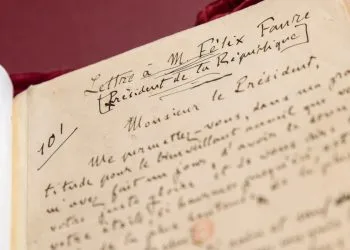 Lettre à M. Félix Faure
Président de la République
101
Monsieur le Président,
Me permettez-vous, dans ma gra
titude pour le bienveillant accueil que
m'avez fait un jour, d'avoir le
votre juste gloire et de vous dire
votre étoile, si heureuse jusqu'ici, est
de la plus